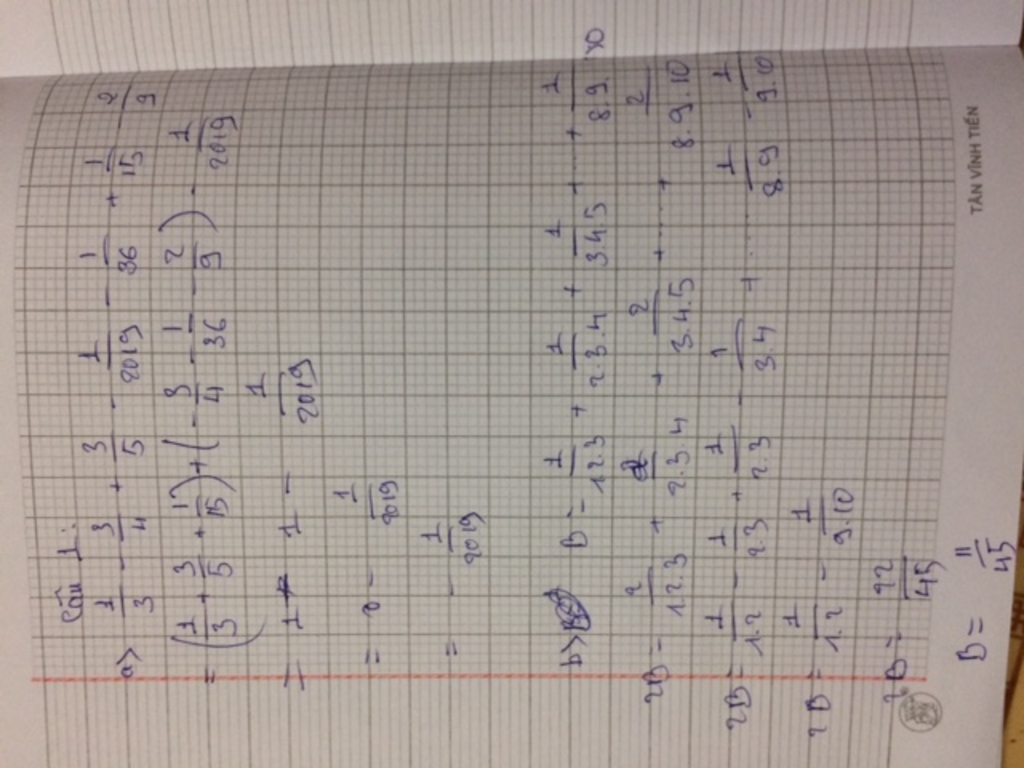 Câu 1:
a) 1/3 - 3/4 + 3/5 - 1/2019 - 1/36 + 1/15 - 2/9
= (1/3 + 3/5 + 1/15) + (- 3/4 - 1/36 - 2/9) - 1/2019
= 1 - 1 - 1/2019
= 0 - 1/2019
= - 1/2019
b) B = 1/1.2.3 + 1/2.3.4 + 1/3.4.5 + ..... + 1/8.9.10
2B = 2/1.2.3 + 2/2.3.4 + 2/3.4.5 + ..... + 2/8.9.10
2B = 1/1.2 - 1/2.3 + 1/2.3 - 1/3.4 + ..... 1/8.9 - 1/9.10
2B = 1/1.2 - 1/9.10
2B = 22/45
B = 11/45
TÂN VĨNH TIẾN